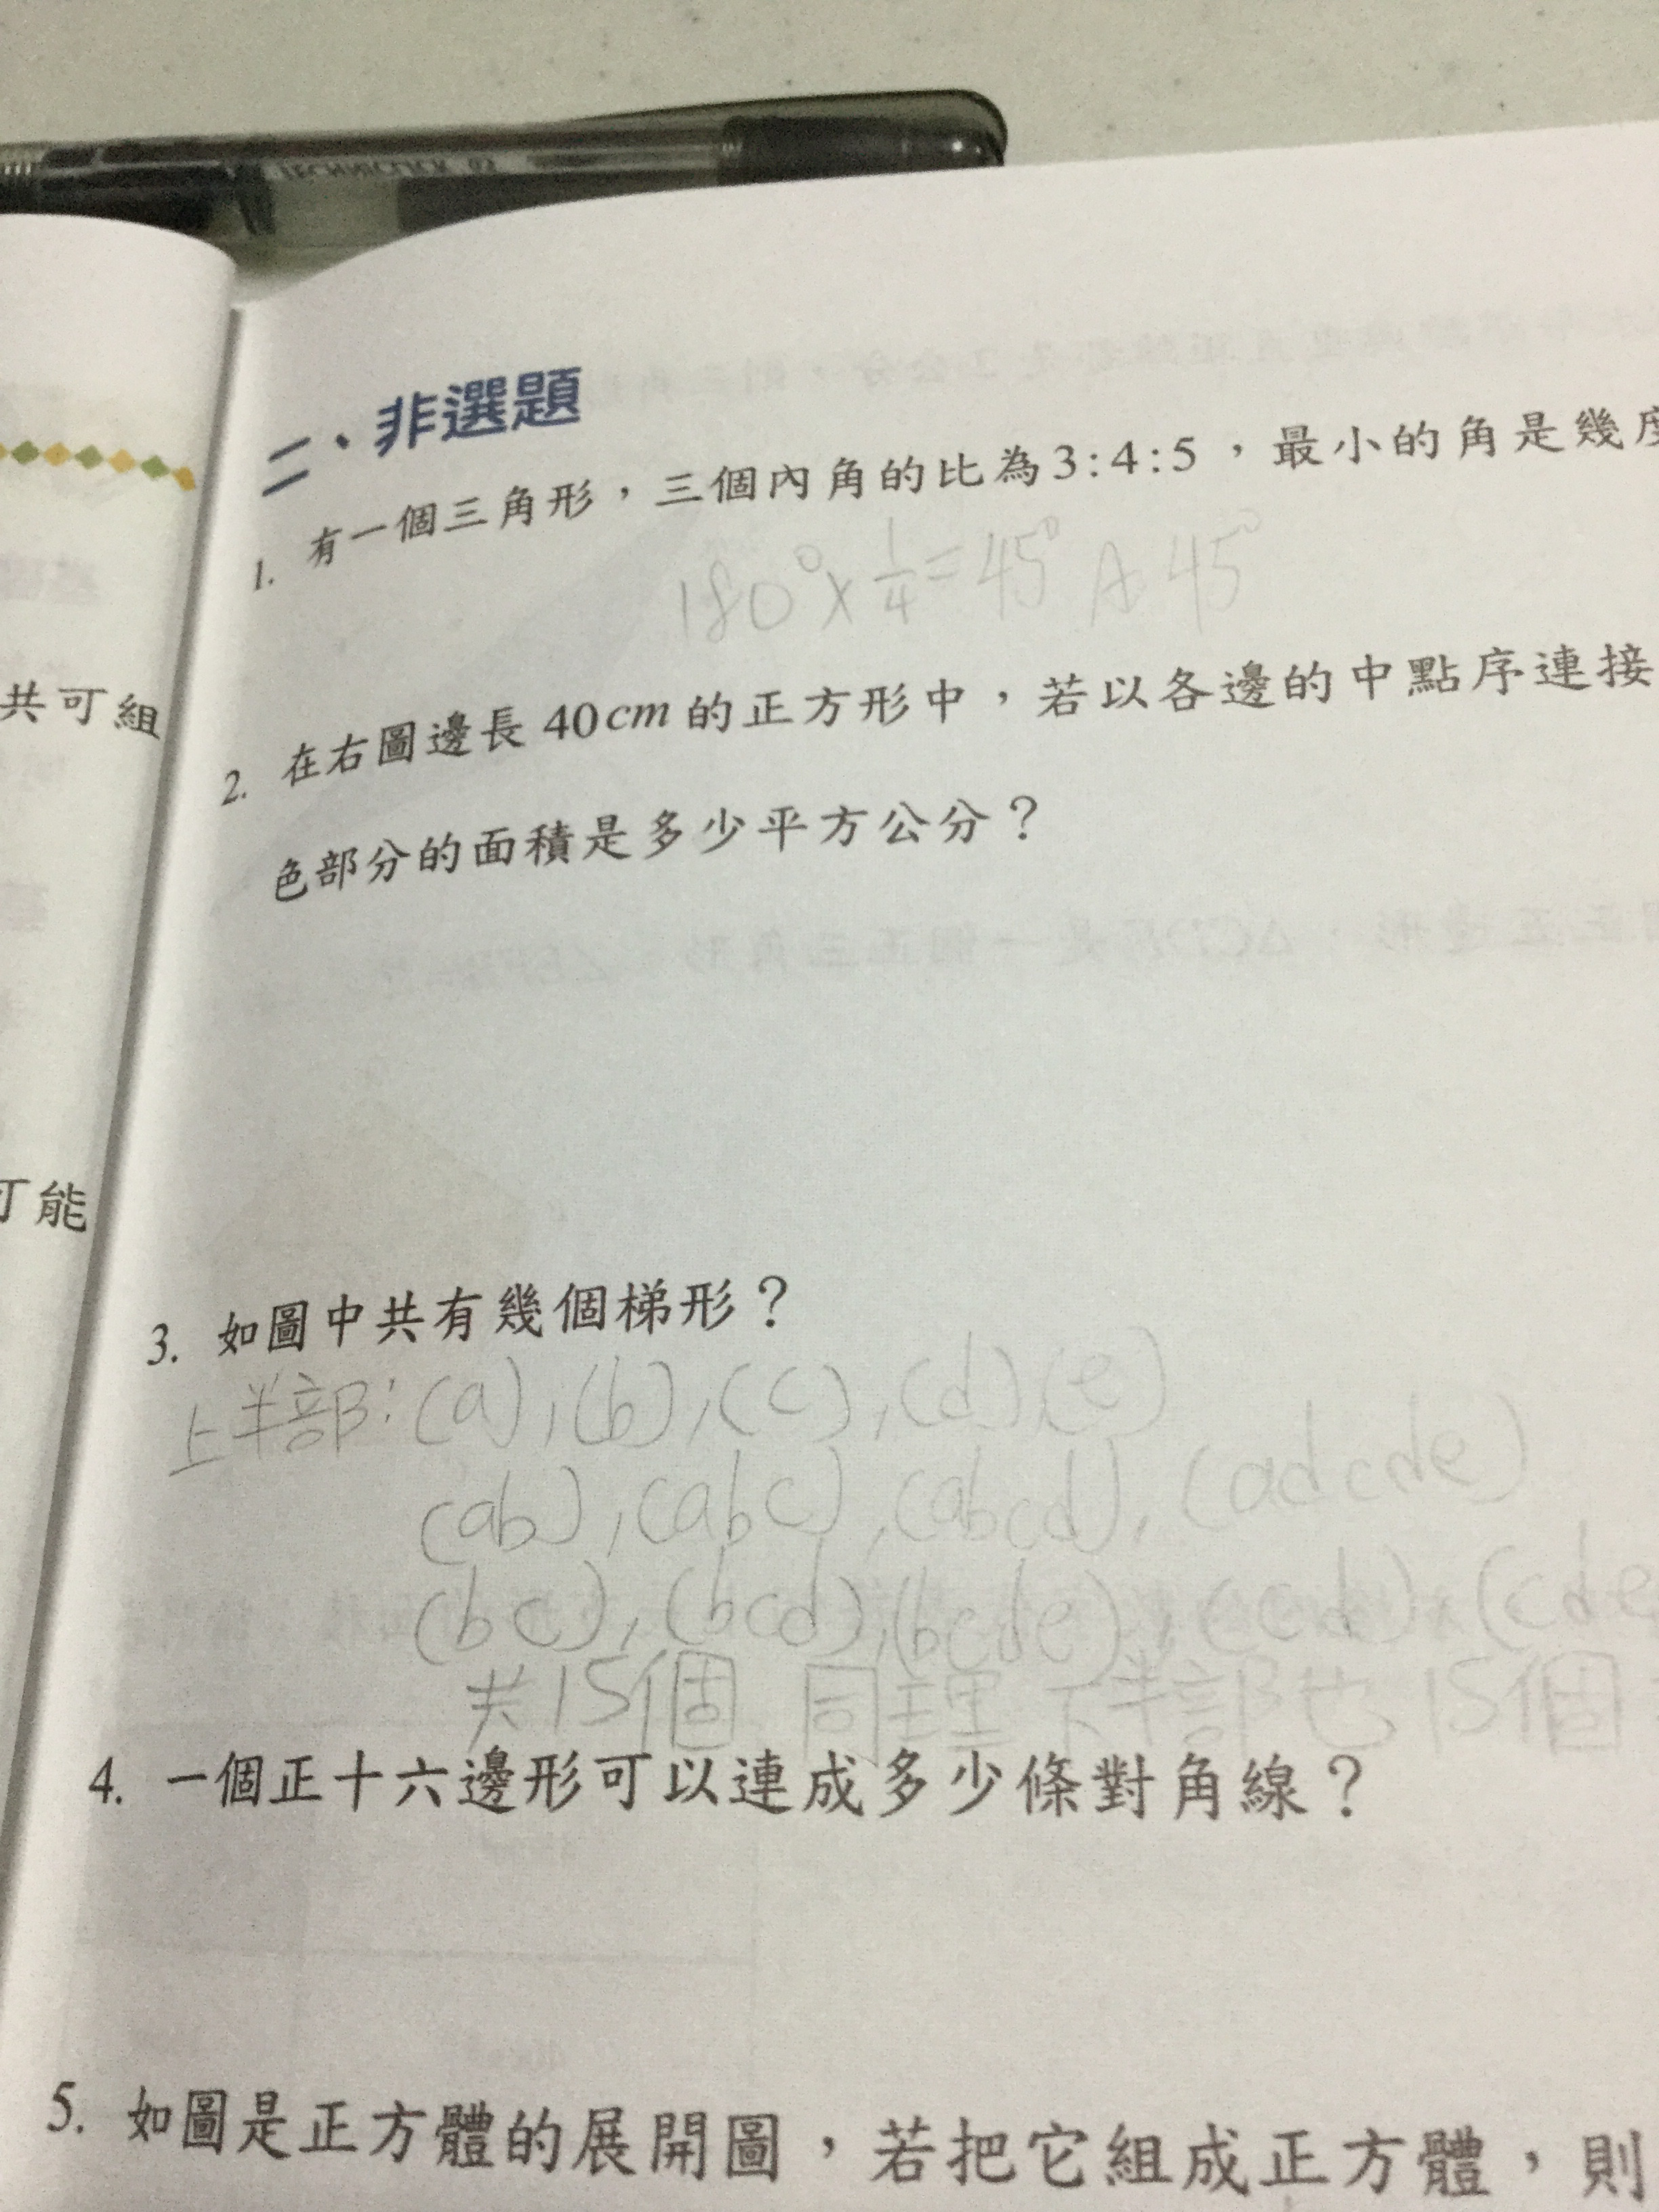 TECHNICLICK 0.5
共可組
可能
二、非選題
1. 有一個三角形，三個內角的比為3:4:5，最小的角是幾度
180°×1/4=45° A 45°
2. 在右圖邊長 40cm 的正方形中，若以各邊的中點序連接
色部分的面積是多少平方公分？
3. 如圖中共有幾個梯形？
上半部:(a),(b),(c),(d)(e)
(ab),(abc),(abcd),(adcde)
(bc),(bcd),(bcde),(cd),(cde
共15個 同理 下半部也15個
4. 一個正十六邊形可以連成多少條對角線？
5. 如圖是正方體的展開圖，若把它組成正方體，則